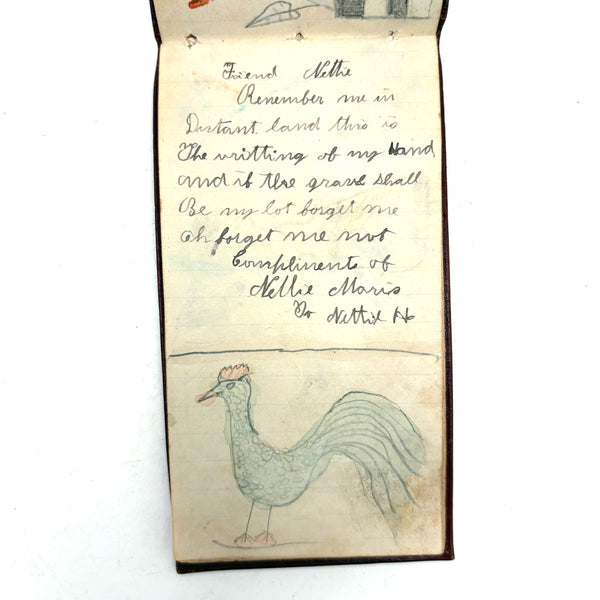 Friend Nettie
Remember me in
Distant land this is
The writting of my Hand
and if the grave shall
Be my lot forget me
oh forget me not
Compliments of
Nellie Maris
To Nettie H